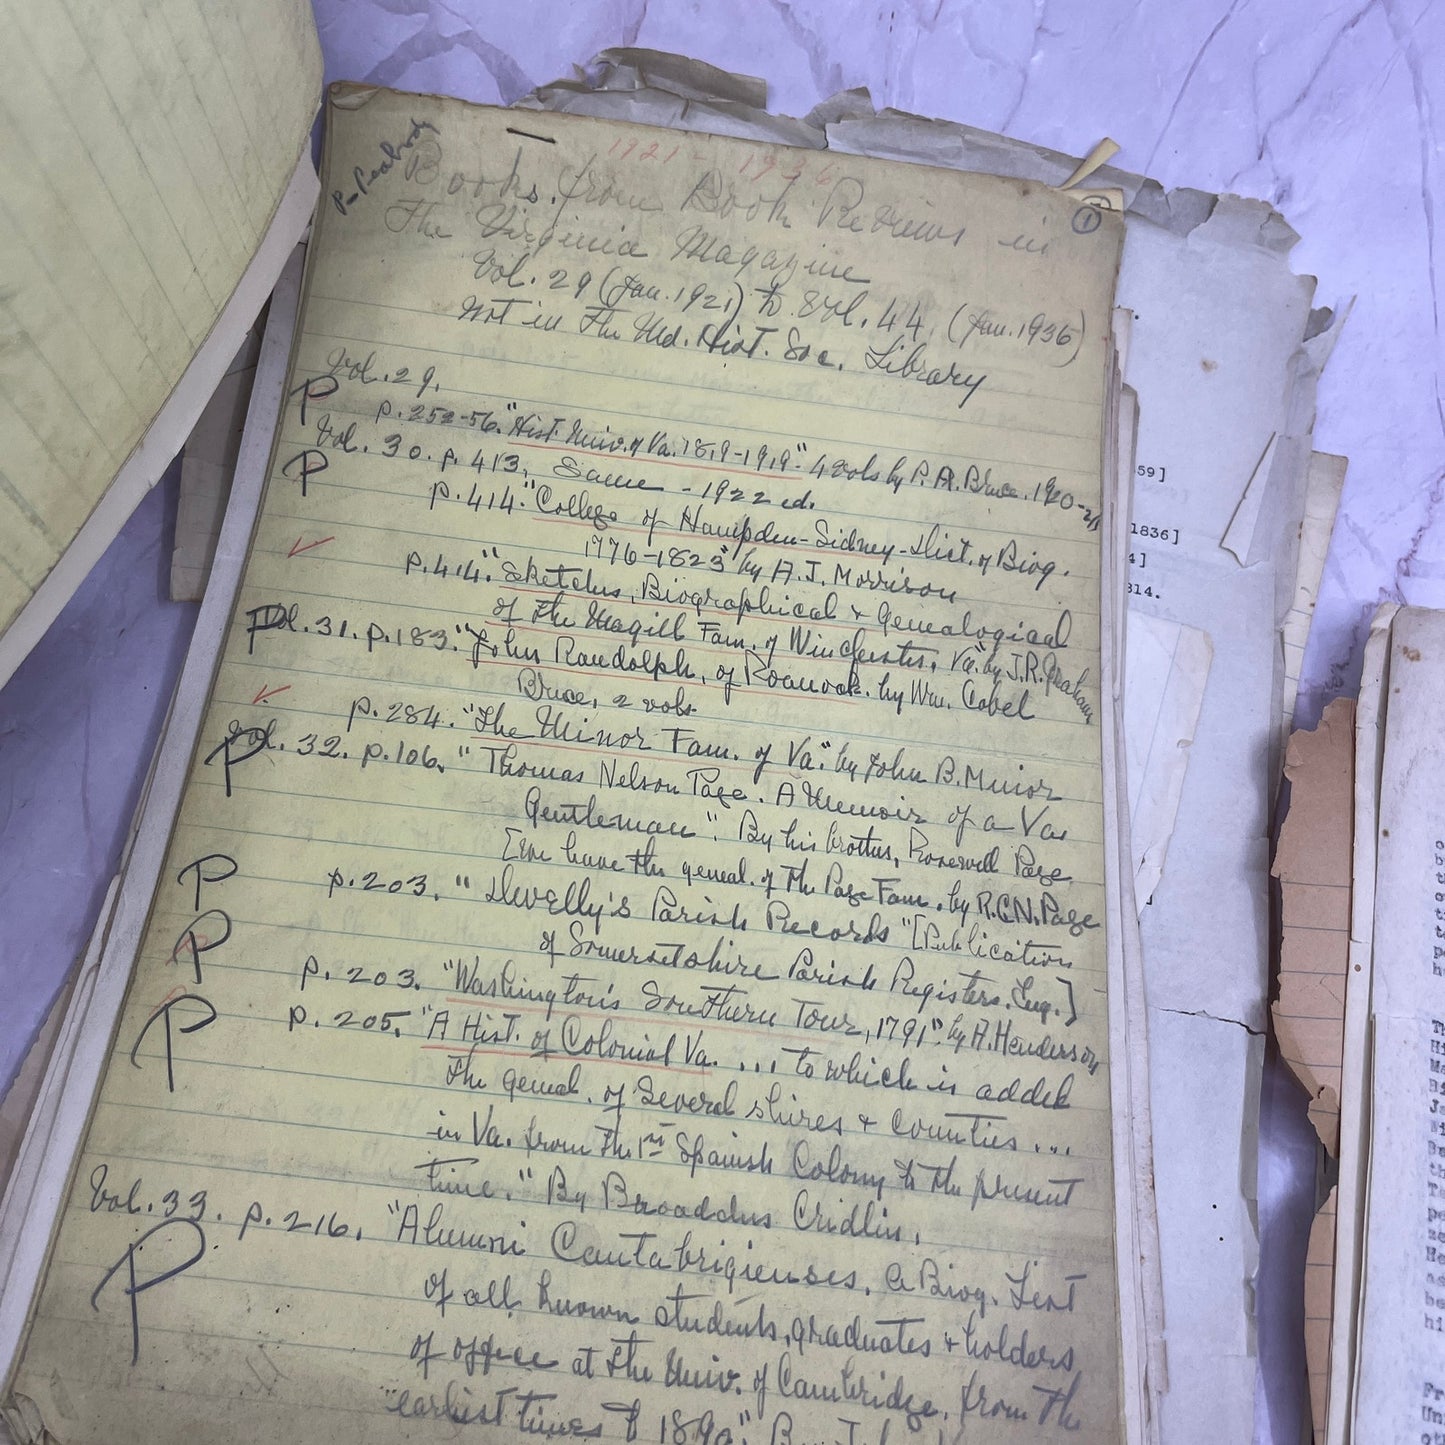 1921 - 1936
P-Peabody
Books from Book Reviews in
1
The Virginia Magazine
Vol. 29 (Jan. 1921) to Vol. 44 (Jan. 1936)
Not in the Md. Hist. Soc. Library
Vol. 29.
P p. 252-56. "Hist. Univ. of Va. 1819-1919." 4 vols by P. A. Bruce. 1920-21
Vol. 30. p. 413. Same - 1922 ed.
P p. 414. "College of Hampden-Sidney-Dict. of Biog.
1776-1823" by A. J. Morrison
p. 414. "Sketches, Biographical & Genealogical
of the Magill Fam. of Winchester, Va." by J. R. Graham
Vol. 31. p. 183. "John Randolph, of Roanoak. by Wm. Cabel
P
Bruce, 2 vols.
p. 284. "The Minor Fam. of Va." by John B. Minor
Vol. 32. p. 106. "Thomas Nelson Page. A Memoir of a Va.
P
Gentleman". By his brother, Rosewell Page.
[we have the geneal. of the Page Fam. by R.C.N. Page
P p. 203. "Llwelly's Parish Records" [Publication
of Somersetshire Parish Registers. Eng.]
P p. 203. "Washington's Southern Tour, 1791" by A. Henderson
P p. 205. "A Hist. of Colonial Va. ... to which is added
the geneal. of Several shires & counties ...
in Va. from the 1st Spanish Colony to the present
time." By Broaddus Cridlin.
Vol. 33. p. 216. "Alumni Cantabrigienses. A Biog. List
P
of all known students, graduates & holders
of office at the Univ. of Cambridge, from the
earliest times to
59]
1836]
4]
814.